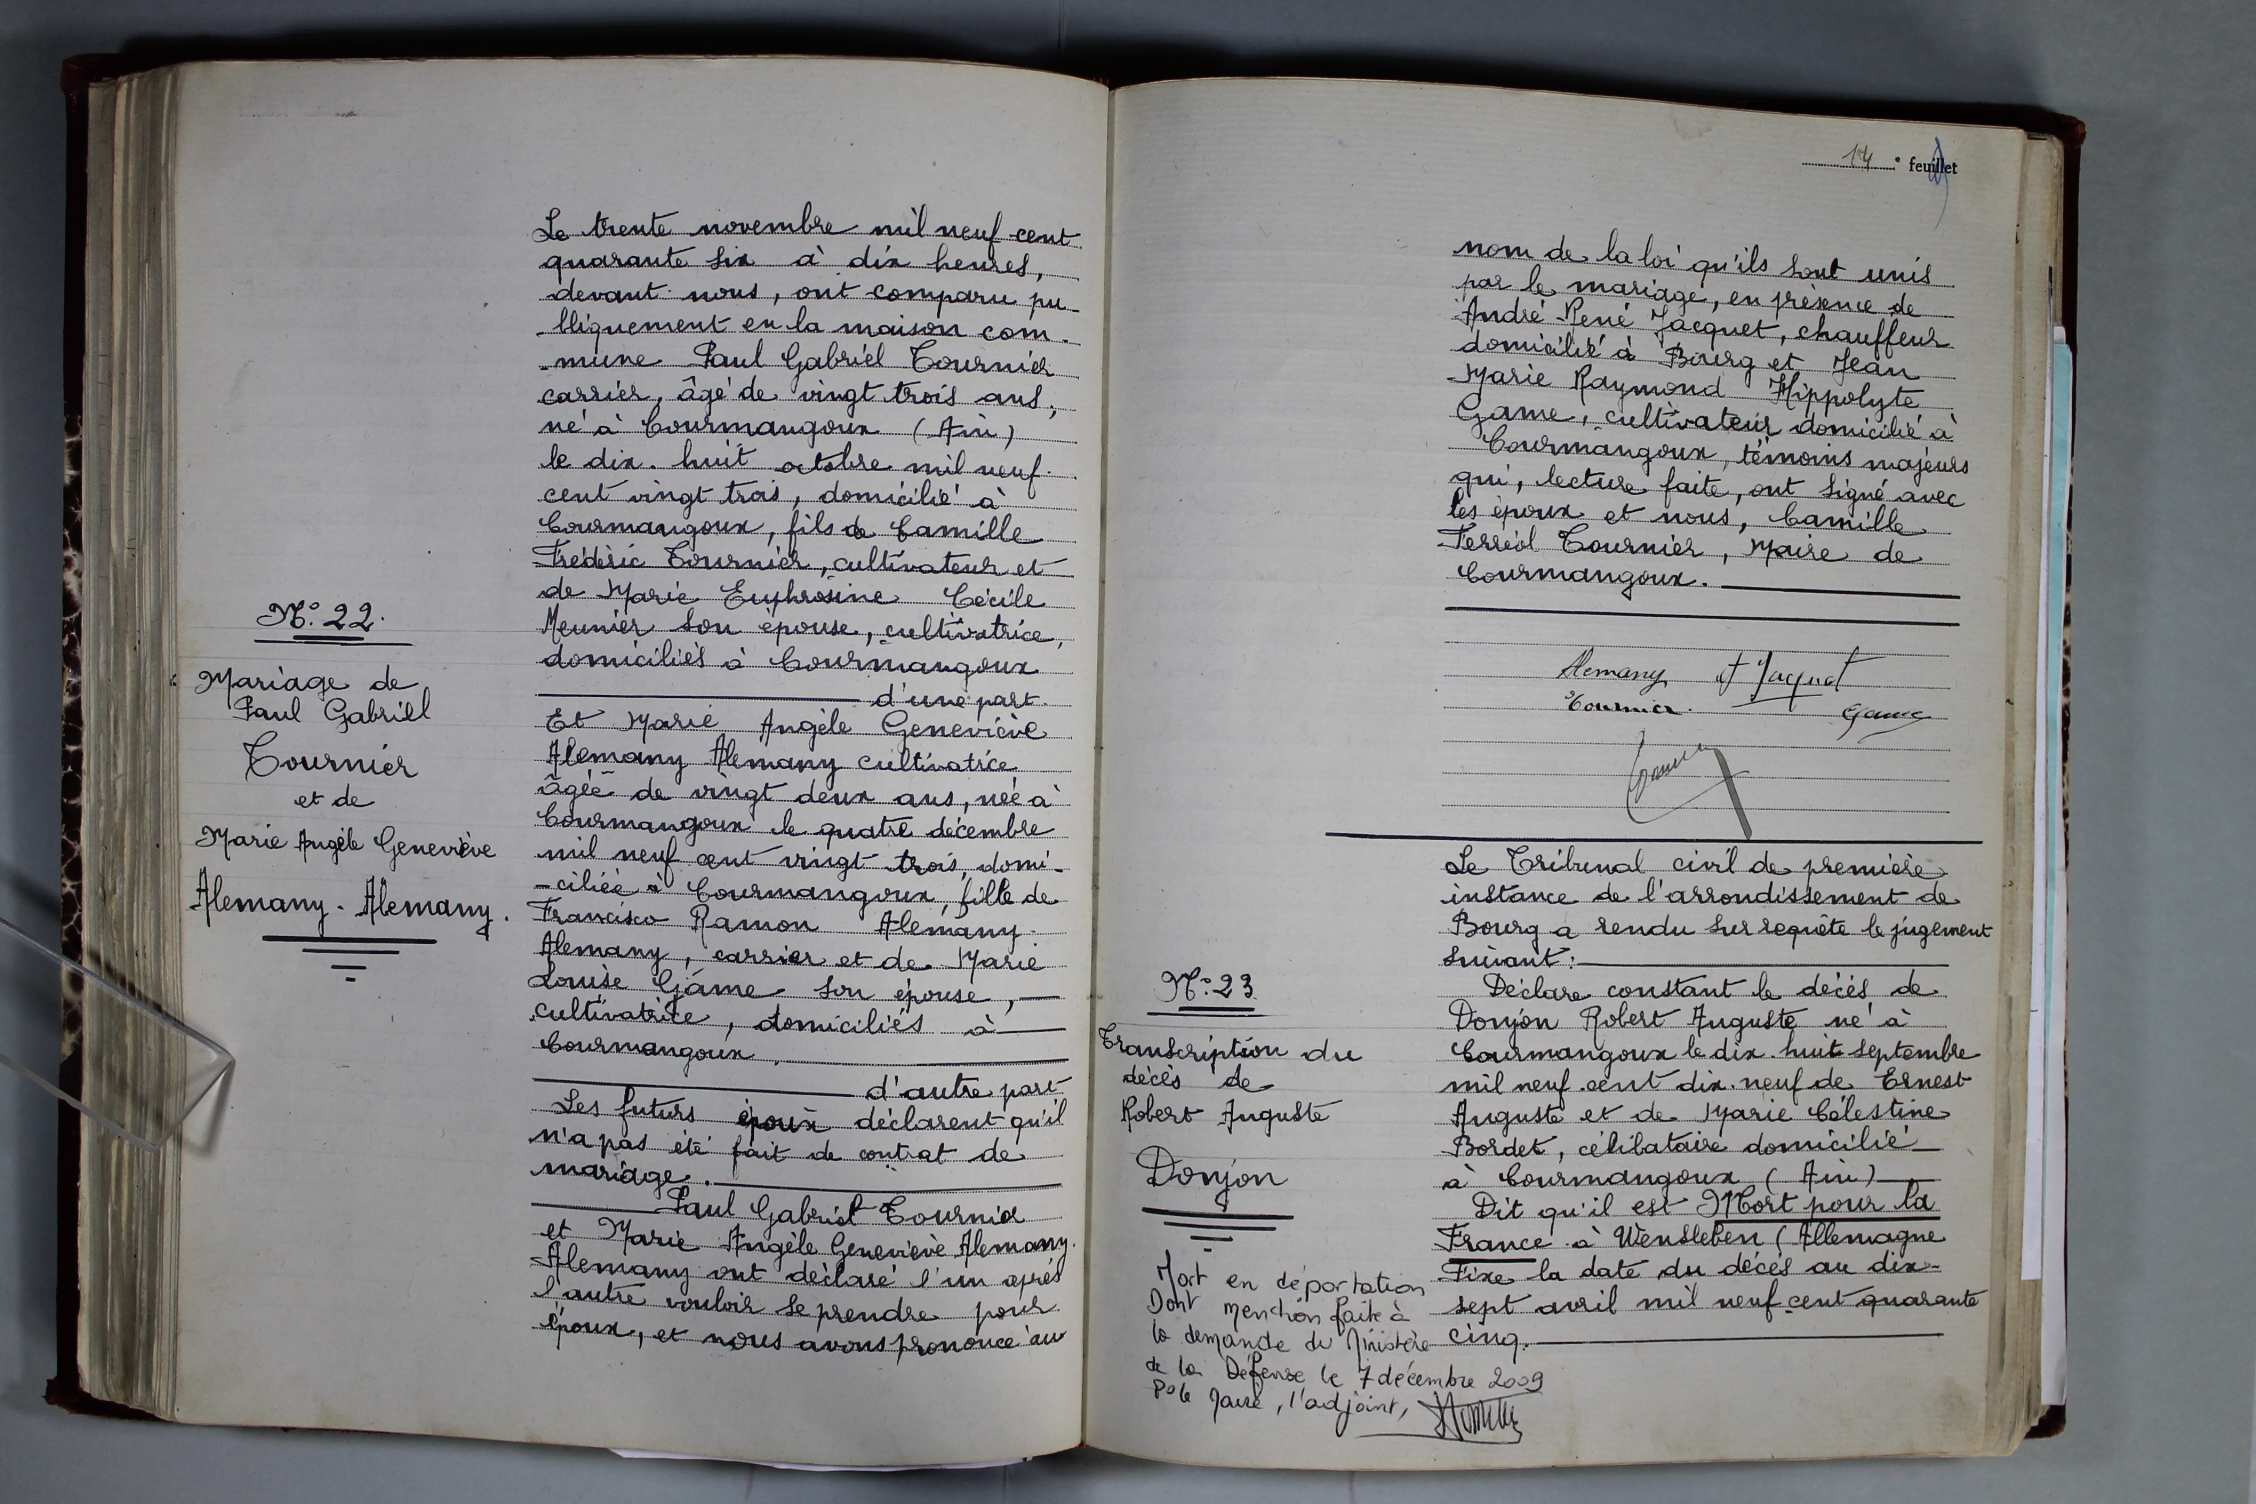 N°. 22.
Mariage de
Paul Gabriel
Tournier
et de
Marie Angèle Geneviève
Alemany - Alemany.
Le trente novembre mil neuf cent
quarante six à dix heures,
devant nous, ont comparu pu-
bliquement en la maison com-
-mune Paul Gabriel Tournier
carrier, âgé de vingt trois ans,
né à Courmangoux (Ain)
le dix-huit octobre mil neuf
cent vingt trois, domicilié à
Courmangoux, fils de Camille
Frédéric Tournier, cultivateur et
de Marie Euphrosine Cécile
Meunier son épouse, cultivatrice,
domiciliés à Courmangoux
d'une part.
Et Marie Angèle Geneviève
Alemany Alemany cultivatrice
âgée de vingt deux ans, née à
Courmangoux le quatre décembre
mil neuf cent vingt-trois, domi-
-ciliée à Courmangoux, fille de
Francisco Ramon Alemany
Alemany, carrier et de Marie
Louise Gâme son épouse,
cultivatrice, domiciliés à
Courmangoux.
d'autre part
Les futurs époux déclarent qu'il
n'a pas été fait de contrat de
mariage.
Paul Gabriel Tournier
et Marie Angèle Geneviève Alemany
Alemany ont déclaré l'un après
l'autre vouloir se prendre pour
époux, et nous avons prononcé au
14 e feuillet
nom de la loi qu'ils sont unis
par le mariage, en présence de
André René Jacquet, chauffeur
domicilié à Bourg et Jean
Marie Raymond Hippolyte
Game, cultivateur domicilié à
Courmangoux, témoins majeurs
qui, lecture faite, ont signé avec
les époux et nous, Camille
Ferréol Tournier, Maire de
Courmangoux.
Alemany Jacquet
Tournier. Game
N°. 23
Transcription du
décès de
Robert Auguste
Donjon
Le Tribunal civil de première
instance de l'arrondissement de
Bourg a rendu sur requête le jugement
suivant:
Déclare constant le décès de
Donjon Robert Auguste né à
Courmangoux le dix-huit septembre
mil neuf cent dix-neuf de Ernest
Auguste et de Marie Célestine
Bordet, célibataire domicilié
à Courmangoux (Ain)
Dit qu'il est Mort pour la
France à Wensleben (Allemagne
Fixe la date du décès au dix-
sept avril mil neuf cent quarante
cinq.
Mort en déportation
Dont mention faite à
la demande du Ministère
de la Défense le 7 décembre 2009
Po le Maire, l'adjoint,